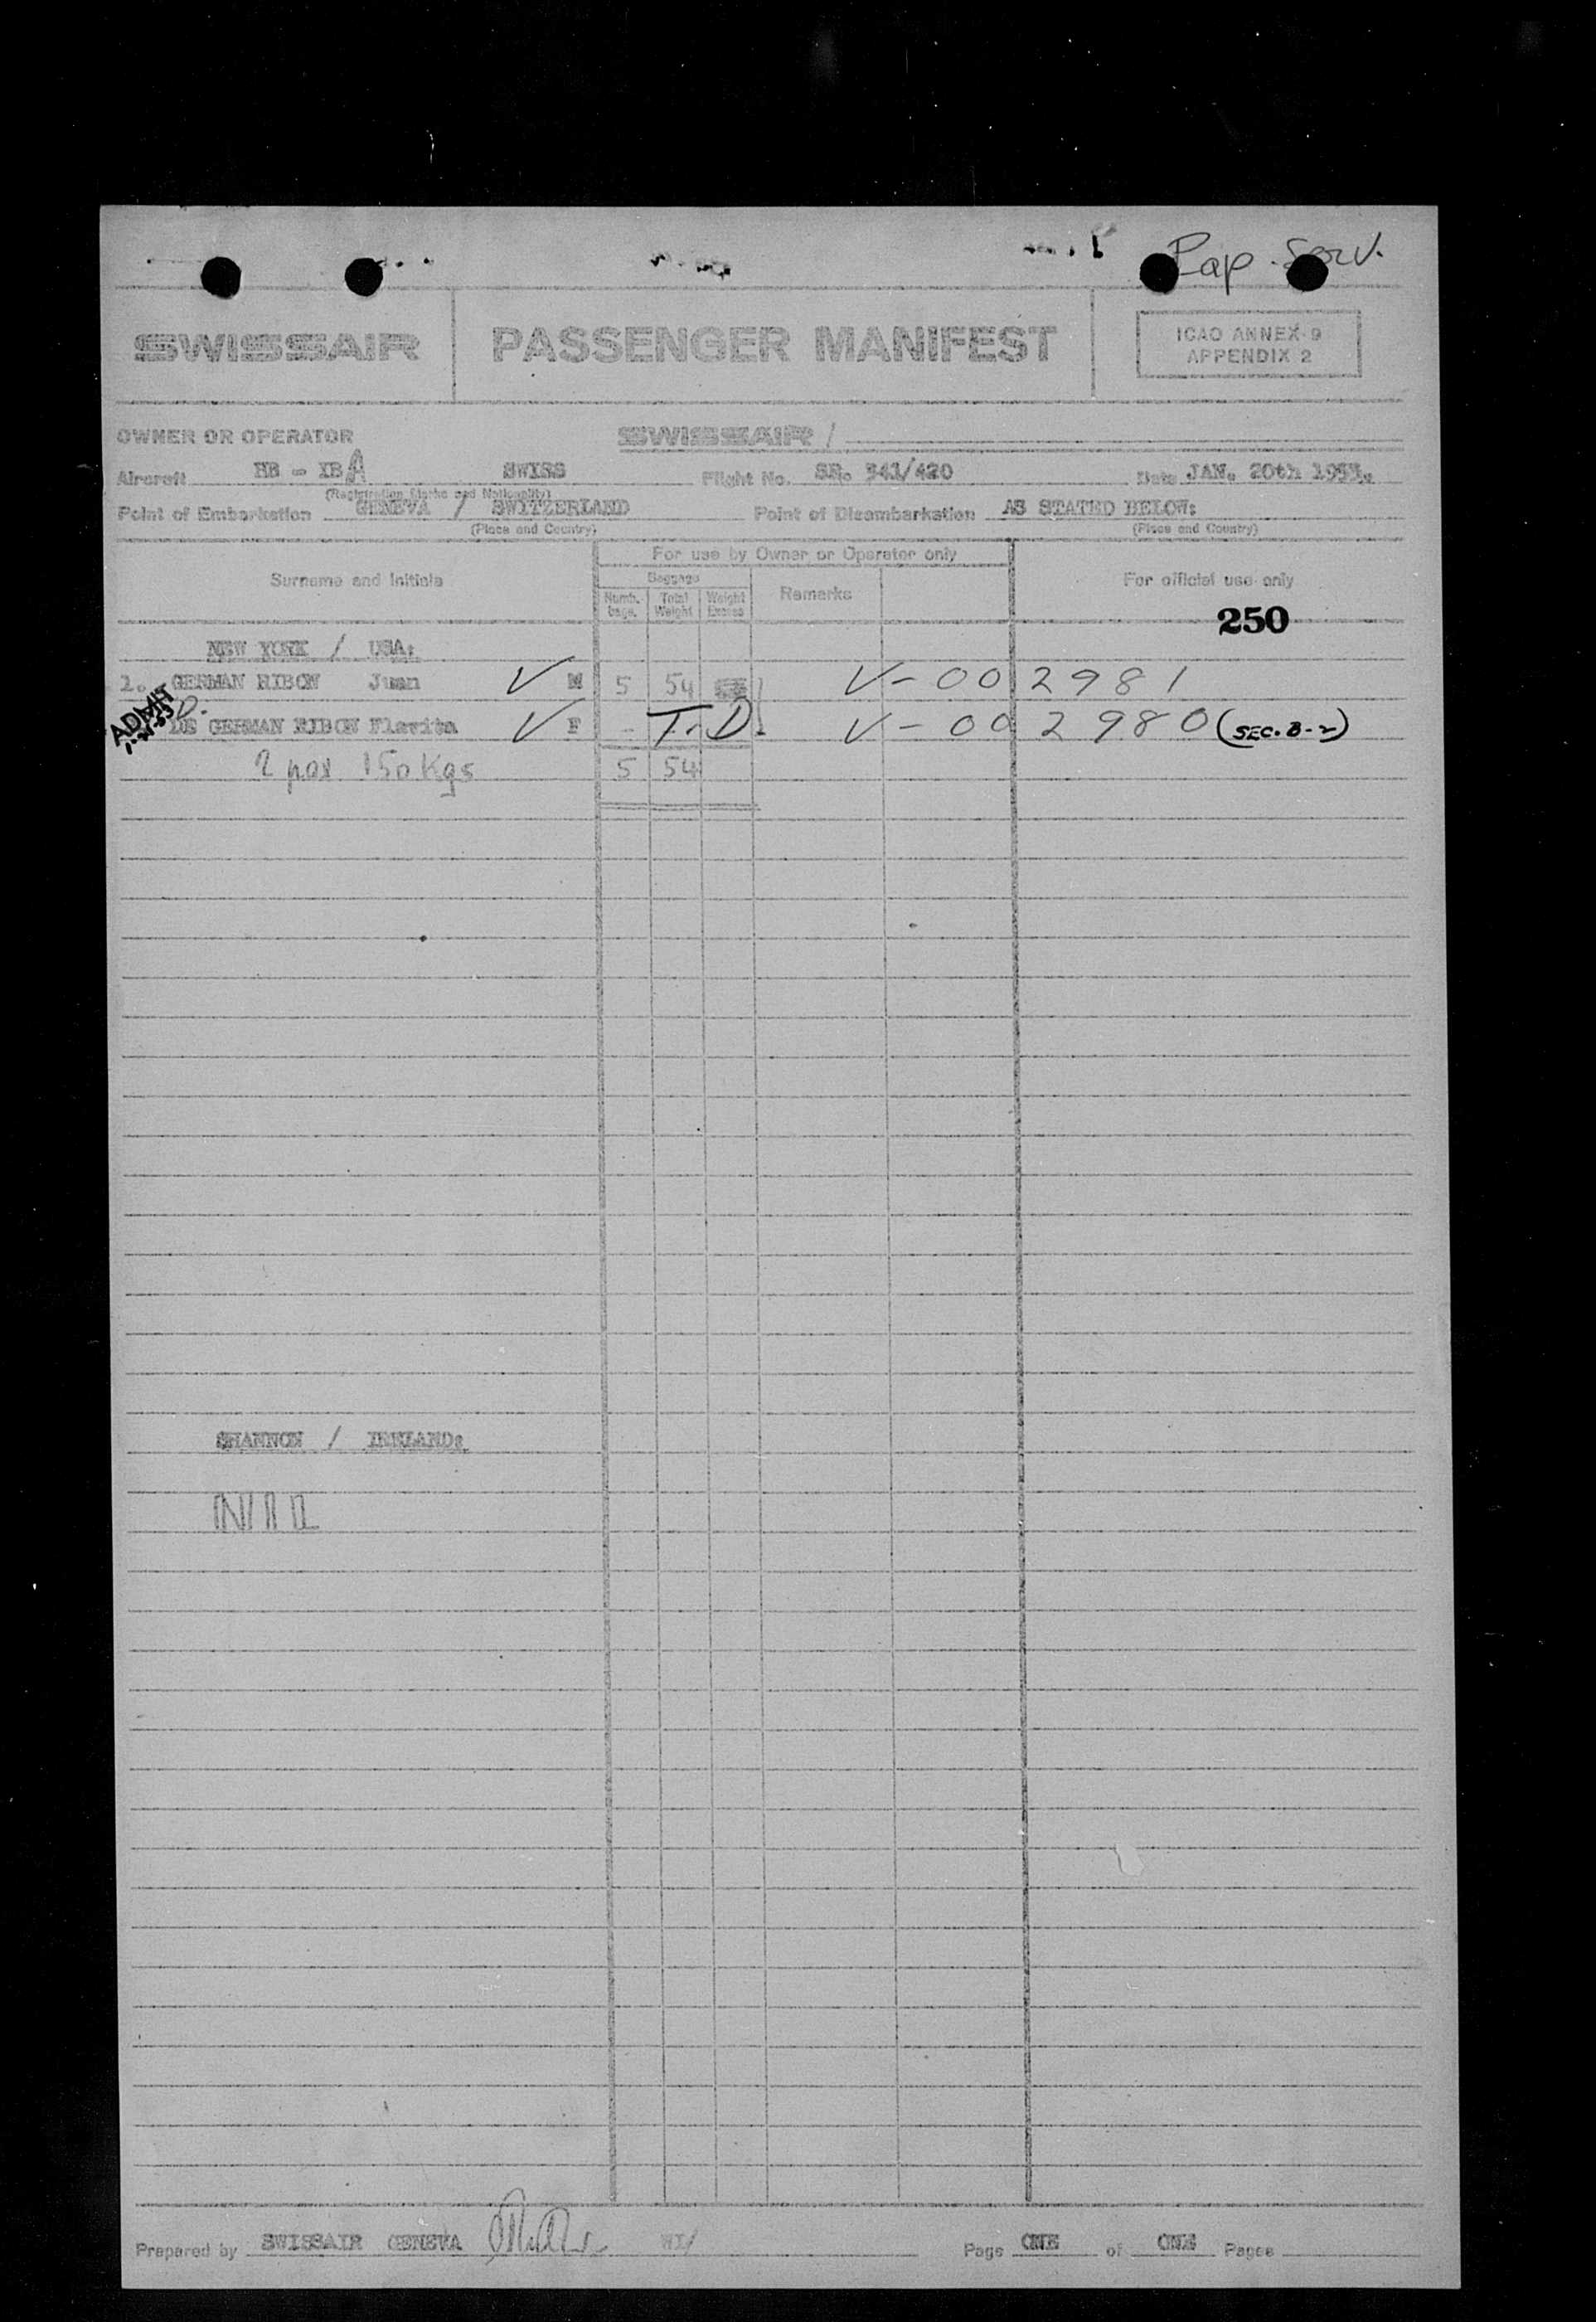 Pap. Serv.
SWISSAIR PASSENGER MANIFEST ICAO ANNEX 9
APPENDIX 2
OWNER OR OPERATOR SWISSAIR /
Aircraft HB - IBA SWISS Flight No. SR. 341/420 Date JAN. 20th 1953.
(Registration Marks and Nationality)
Point of Embarkation GENEVA / SWITZERLAND Point of Disembarkation AS STATED BELOW:
(Place and Country) (Place and Country)
For use by Owner or Operator only
Surname and Initials Baggage Remarks For official use only
Numb. bags. Total Weight Weight Excess
250
NEW YORK / USA:
1. GERMAN RIBON Juan V M 5 54 V-002981
ADMIT
1-21-53
D.
DE GERMAN RIBON Flavita V F - T.D. V-002980 (SEC. B-2)
2 pax 150 Kgs 5 54
SHANNON / IRELAND:
NIL
Prepared by SWISSAIR GENEVA WI/ Page ONE of ONE Pages